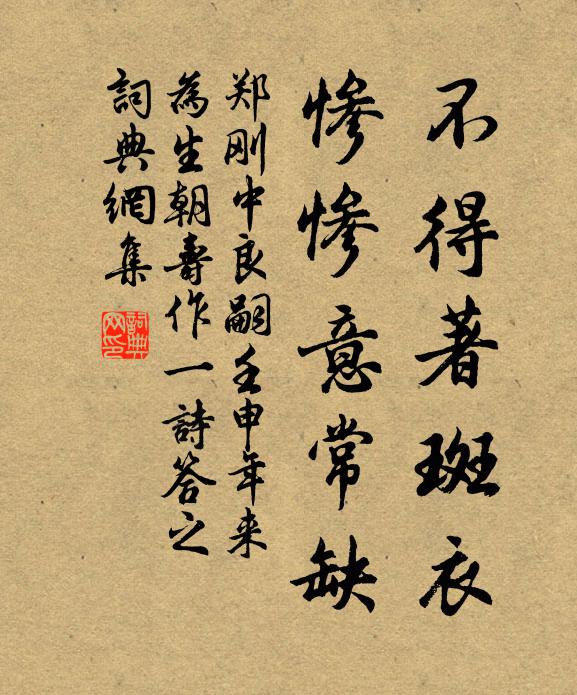 不得著斑衣
惨惨意常缺
郑刚中良嗣壬申年来
為生朝壽作一詩答之
詞典網集
詞典网印